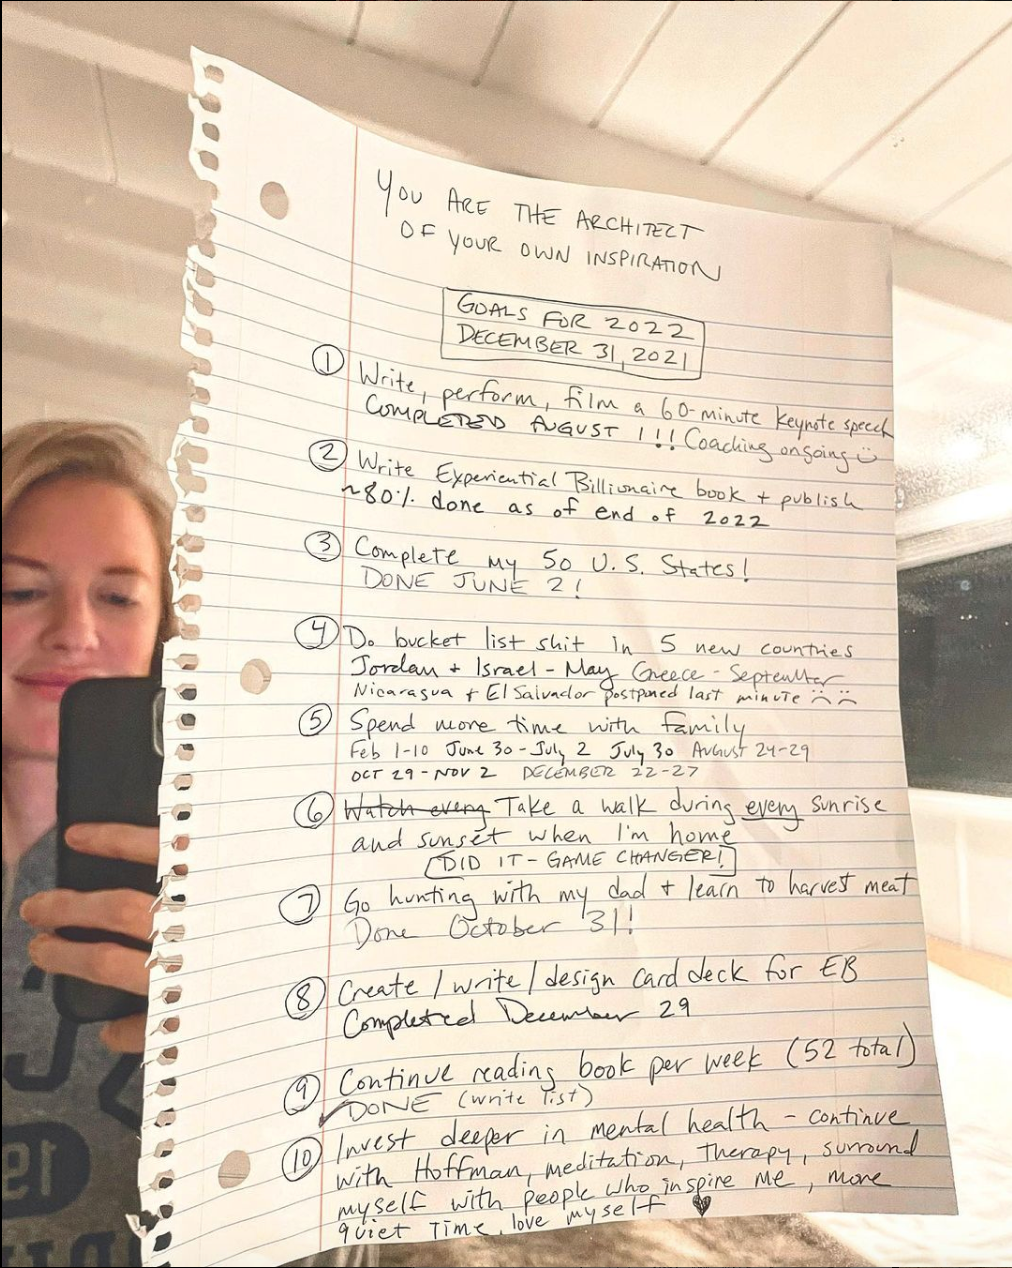 YOU ARE THE ARCHITECT
OF YOUR OWN INSPIRATION
GOALS FOR 2022
DECEMBER 31, 2021
① Write, perform, film a 60-minute keynote speech
COMPLETED AUGUST 1!!! Coaching ongoing ☺
② Write Experiential Billionaire book + publish
~80% done as of end of 2022
③ Complete my 50 U.S. States!
DONE JUNE 2!
④ Do bucket list shit in 5 new countries
Jordan + Israel - May Greece - September
Nicaragua + El Salvador postponed last minute ☹ ☹
⑤ Spend more time with family
Feb 1-10 June 30 - July 2 July 30 AUGUST 24-29
OCT 29 - NOV 2 DECEMBER 22-27
⑥ Watch every Take a walk during every sunrise
and sunset when I'm home
DID IT - GAME CHANGER!
⑦ Go hunting with my dad + learn to harvest meat
Done October 31!
⑧ Create / write / design card deck for EB
Completed December 29
⑨ Continue reading book per week (52 total)
✓DONE (write list)
⑩ Invest deeper in mental health - continue
with Hoffman, meditation, Therapy, surround
myself with people who inspire me, more
quiet time, love myself ♥
19